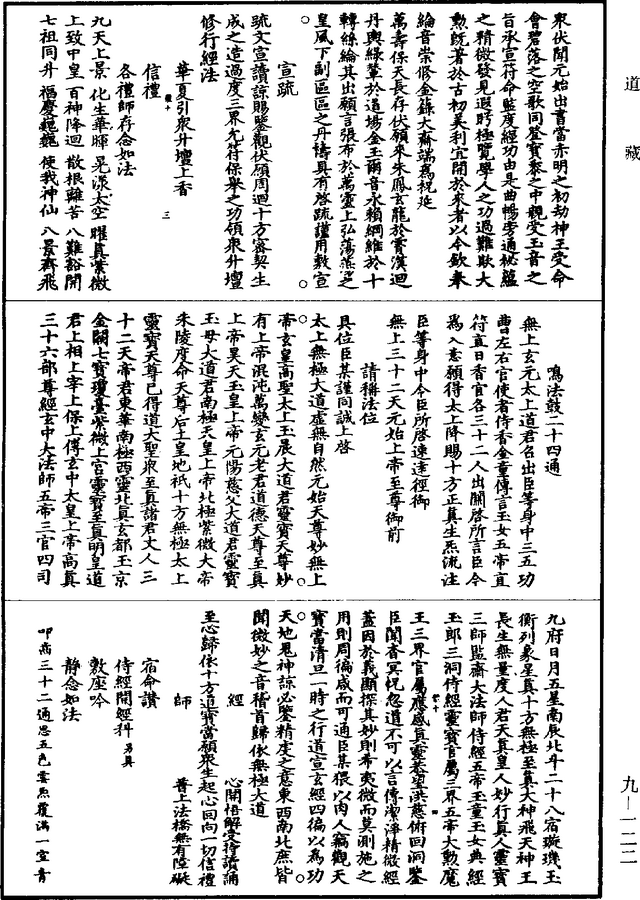 道藏
衆伏聞元始出書當赤明之初劫神王受命
會碧落之空歌同登寶黍之中親受玉音之
旨承宣符命監度經功由是曲暢旁通祕蘊
之精微發見遐眄極覽學人之功過難耿大
勲既著於古初美利宜開於來者以今欽奉
綸音崇修金籙大齋端為祝延
萬壽保天長存伏願來朱鳳玄龍於霄漢迴
丹輿綠輦於道場金玉爾音永賴綱維於十
轉絲綸其出願言張布於萬靈上弘蕩蕩之
皇風下副區區之丹禱具有啓疏謹用敷宣
宣疏
疏文宣讀諒賜鑒觀伏願周迴十方審契生
成之造過度三界允符保舉之功領衆升壇
修行經法
華夏引衆升壇上香
信禮
各禮師存念如法
九天上景 化生華暉 晃浪太空 曜真紫微
上致中皇 百神降迴 散根離苦 八難豁開
七祖同升 福慶巍巍 使我神仙 八景齊飛
鳴法鼓二十四通
無上玄元太上道君召出臣等身中三五功
曹左右官使者侍香金童傳言玉女五帝直
符直日香官各三十二人出關啓所言臣今
為入意願得太上降賜十方正真生炁流注
臣等身中令臣所啓速達徑御
無上三十二天元始上帝至尊御前
請稱法位
具位臣某謹同誠上啓
太上無極大道虛無自然元始天尊妙無上
帝玄皇高聖太上玉晨大道君靈寶天尊妙
有上帝混沌萬變玄元老君道德天尊至真
上帝昊天玉皇上帝元陽慈父大道君靈寶
玉母大道君南極天皇上帝北極紫微大帝
朱陵度命天尊后土皇地祇十方無極太上
靈寶天尊已得道大聖衆至真諸君丈人三
十二天帝君東華南極西靈北真玄都玉京
金闕七寶瓊臺紫微上宮靈寶至真明皇道
君上相上宰上保上傅玄中太皇上帝高真
三十六部尊經玄中大法師五帝三官四司
九府日月五星南辰北斗二十八宿璇璣玉
衡列象星真十方無極至真大神飛天神王
長生無量度人君天真皇人妙行真人靈寶
三師監齋大法師侍經五帝玉童玉女典經
玉郎三洞侍經靈寶官屬三界五帝大勳魔
王三界官屬應感真靈恭望洪慈俯迴洞鑒
臣聞杳冥恍忽道不可以言傳潔淨精微經
蓋因於義顯探其妙則希夷微而莫測施之
用則周徧咸而可通臣某猥以肉人竊觀天
寶當清旦一時之行道宣玄經四徧以為功
天地鬼神諒必鑒精虔之意東西南北庶皆
聞微妙之音稽首歸依無極大道
經
心開悟解受持讀誦
至心歸依十方道寶當願衆生起心回向一切信禮
師
普上法橋無有障礙
宿命讚
侍經開經科 另具
敷座吟
靜念如法
叩齒三十二通思五色雲炁覆滿一室青
九—一二二